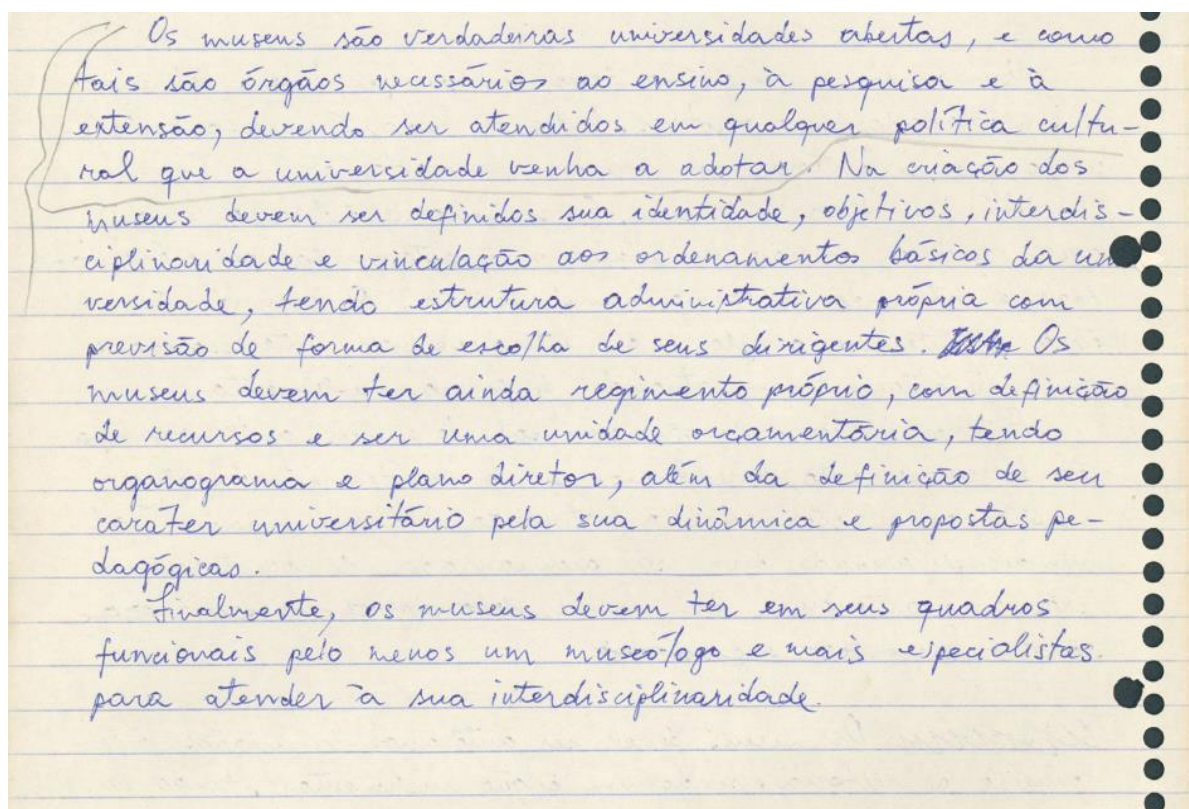 Os museus são verdadeiras universidades abertas, e como
tais são órgãos necessários ao ensino, à pesquisa e à
extensão, devendo ser atendidos em qualquer política cultu-
ral que a universidade venha a adotar. Na criação dos
museus devem ser definidos sua identidade, objetivos, interdis-
ciplinaridade e vinculação aos ordenamentos básicos da uni
versidade, tendo estrutura administrativa própria com
previsão de forma de escolha de seus dirigentes. Os
museus devem ter ainda regimento próprio, com definição
de recursos e ser uma unidade orçamentária, tendo
organograma e plano diretor, além da definição de seu
carater universitário pela sua dinâmica e propostas pe-
dagógicas.
Finalmente, os museus devem ter em seus quadros
funcionais pelo menos um museólogo e mais especialistas
para atender à sua interdisciplinaridade.